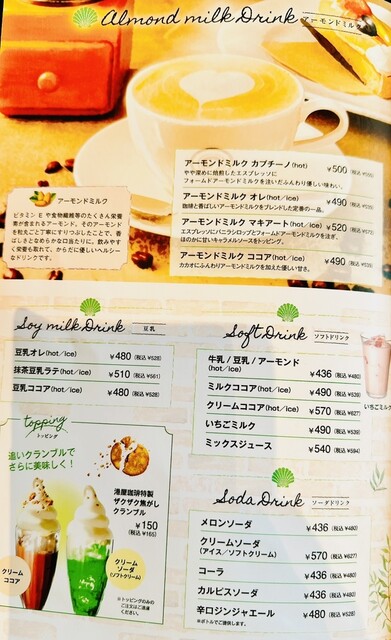 Almond milk Drink
アーモンドミルク
アーモンドミルク カプチーノ(hot) ¥500
やや深めに焙煎したエスプレッソに
フォームドアーモンドミルクを注いだふんわり優しい味わい。
アーモンドミルク オレ(hot/ice) ¥490
珈琲と香ばしいアーモンドミルクをブレンドした定番の一品。
アーモンドミルク マキアート(hot/ice) ¥520
エスプレッソにバニラシロップとフォームドアーモンドミルクを注ぎ、
ほのかに甘いキャラメルソースをトッピング。
アーモンドミルク ココア(hot/ice) ¥490
カカオにふんわりアーモンドミルクを加えた優しい甘さ。
アーモンドミルク
ビタミン E や食物繊維等のたくさん栄養
素が含まれるアーモンド。そのアーモンド
を粒丸ごと丁寧にすりつぶしたことで、香
ばしさとなめらかな口当たりに。飲みやす
く栄養も取れて、からだに優しいヘルシー
なドリンクです。
Soy milk Drink 豆乳
豆乳オレ(hot/ice) ¥480 (税込 ¥528)
抹茶豆乳ラテ(hot/ice) ¥510 (税込 ¥561)
豆乳ココア(hot/ice) ¥480 (税込 ¥528)
topping
トッピング
追いクランブルで
さらに美味しく!
港屋珈琲特製
ザクザク焦がし
クランブル
¥150
(税込 ¥165)
クリーム
ココア
クリーム
ソーダ
(ソフトクリーム)
※トッピングのみの
ご注文はご遠慮
ください。
Soft Drink ソフトドリンク
牛乳 / 豆乳 / アーモンド
(hot/ice) ¥436 (税込 ¥480)
ミルクココア(hot/ice) ¥490 (税込 ¥539)
クリームココア(hot/ice) ¥570 (税込 ¥627)
いちごミルク ¥490 (税込 ¥539)
ミックスジュース ¥540 (税込 ¥594)
いちごミルク
Soda Drink ソーダドリンク
メロンソーダ ¥436 (税込 ¥480)
クリームソーダ
(アイス/ソフトクリーム) ¥570 (税込 ¥627)
コーラ ¥436 (税込 ¥480)
カルピスソーダ ¥436 (税込 ¥480)
辛口ジンジャエール ¥480 (税込 ¥528)
※ボトルでご提供します。